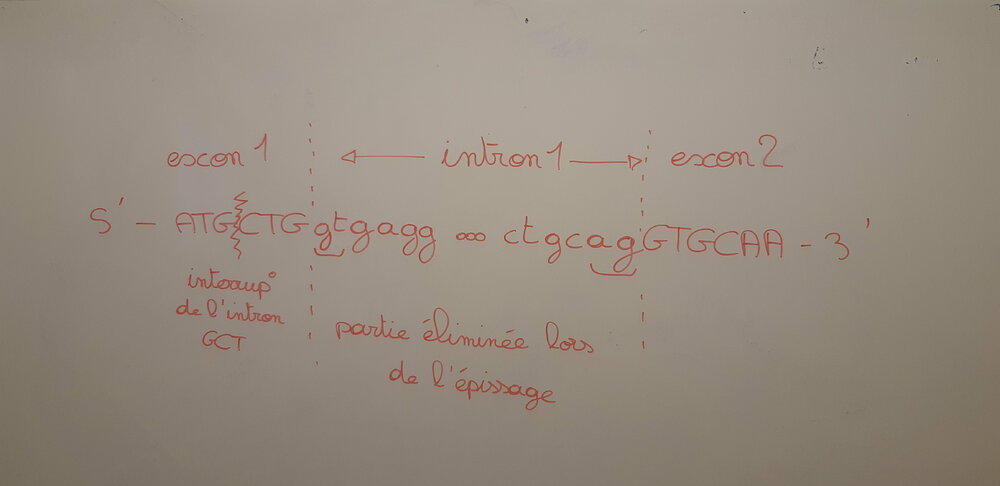 exon 1 intron 1 exon 2
5' - ATGCTGgtgagg ∞ ctgcagGTGCAA - 3'
interrup°
de l'intron
GCT
partie éliminée lors
de l'épissage